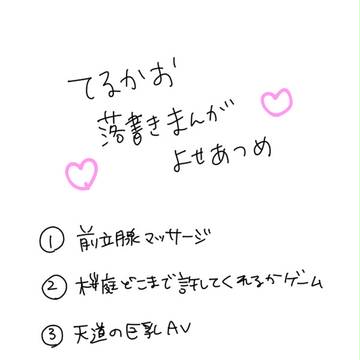 てるかお
落書きまんが
よせあつめ
① 前立腺マッサージ
② 桜庭どこまで許してくれるかゲーム
③ 天道の巨乳AV